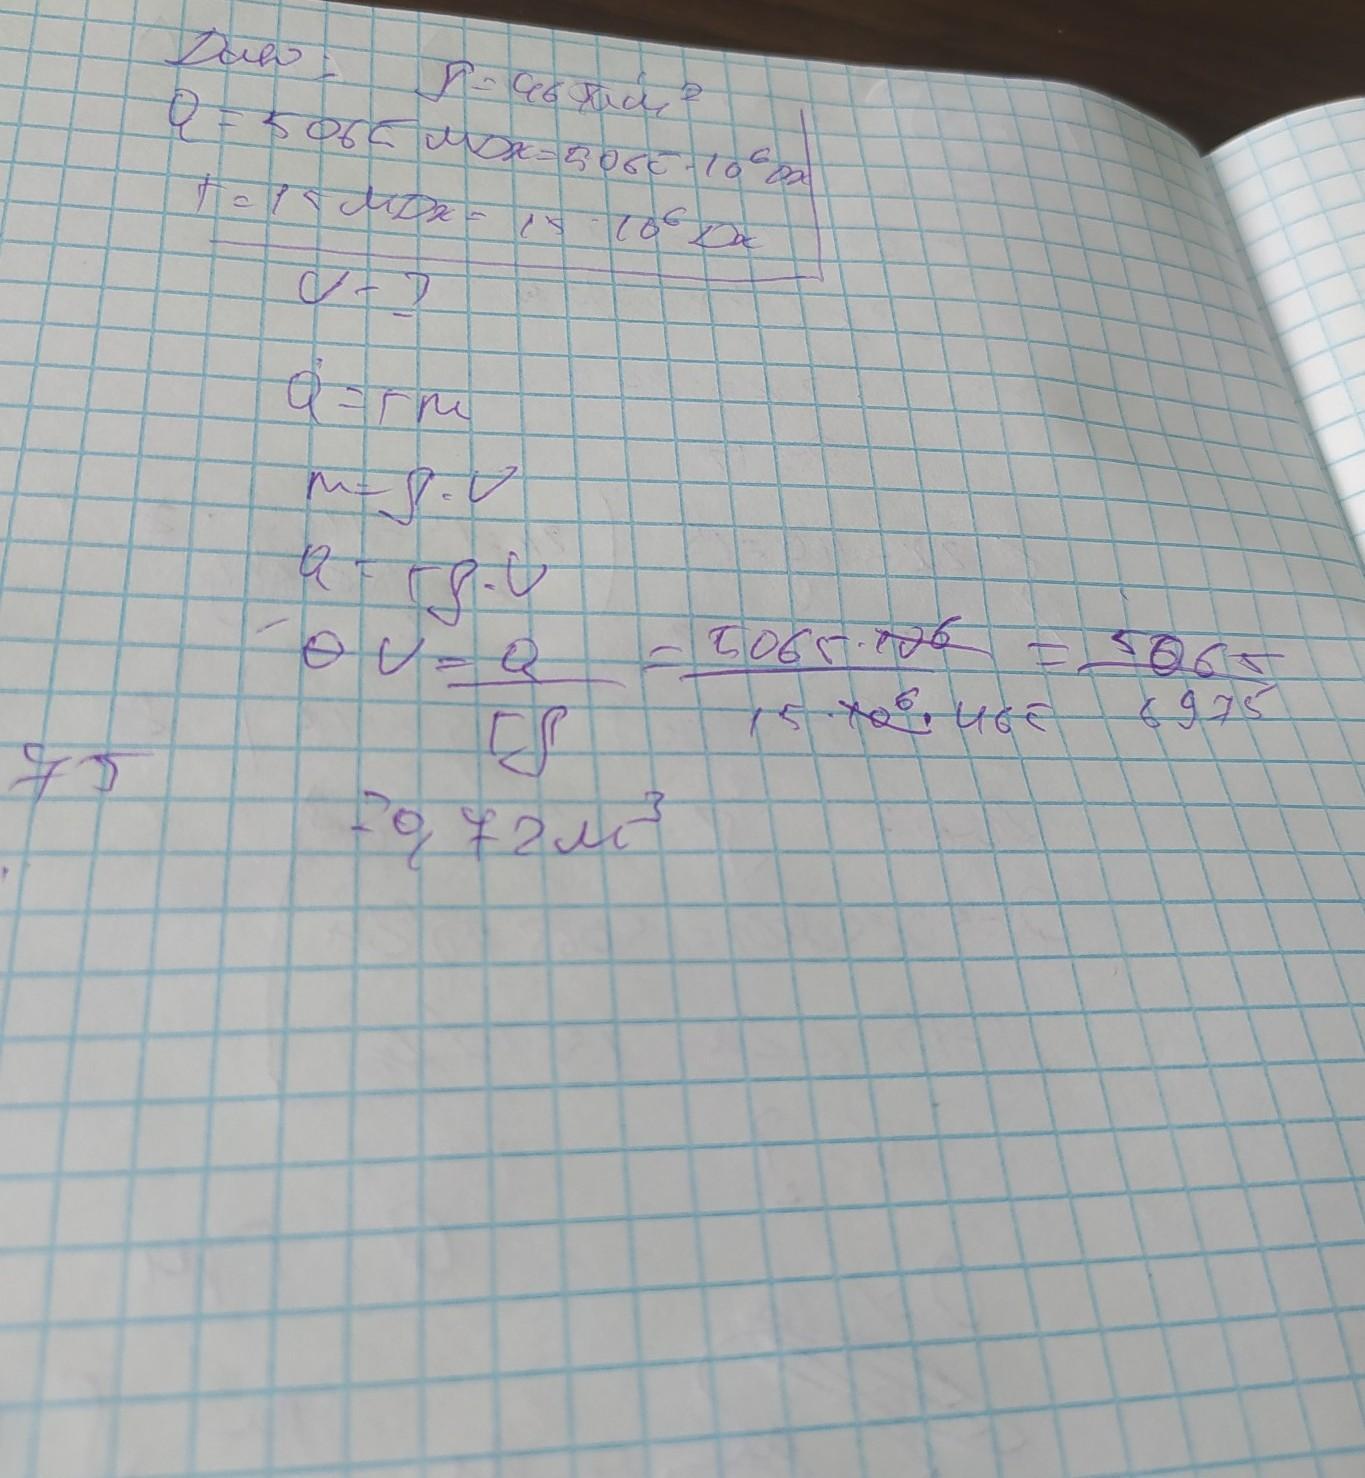 Дано:
Q = 5065 МДж = 5065 · 10⁶ Дж
r = 15 МДж = 15 · 10⁶ Дж
V - ?
Q = rm
m = ρ · V
Q = rρ · V
V = Q / rρ = 5065 · 10⁶ / 15 · 10⁶ · 465 = 5065 / 6975
75
= 0,72 м³